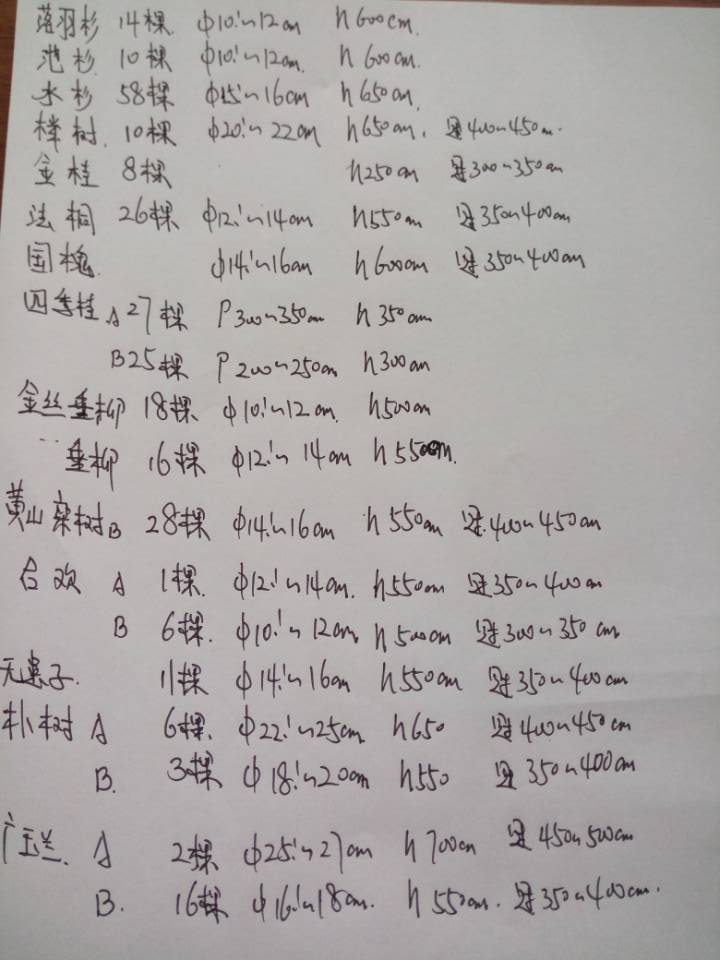 落羽杉 14棵 φ10.1~12cm h600cm.
池杉 10棵 φ10.1~12cm. h600cm.
水杉 58棵 φ15.1~16cm h650cm.
榉树. 10棵 φ20.1~22cm h650cm. 冠400~450cm.
金桂 8棵 h250cm 冠300~350cm
法桐 26棵 φ12.1~14cm h550cm 冠350~400cm
国槐 φ14.1~16cm h600cm 冠350~400cm
四季桂 A 27棵 P300~350cm h350cm
B 25棵 P200~250cm h300cm
金丝垂柳 18棵 φ10.1~12cm. h500cm
垂柳 16棵 φ12.1~14cm h550cm.
黄山栾树B 28棵 φ14.1~16cm h550cm 冠400~450cm
合欢 A 1棵. φ12.1~14cm. h550cm 冠350~400cm
B 6棵. φ10.1~12cm h500cm 冠300~350cm
无患子. 11棵 φ14.1~16cm h550cm 冠350~400cm
朴树 A 6棵. φ22.1~25cm h650 冠400~450cm
B. 3棵 φ18.1~20cm h550 冠350~400cm
广玉兰. A 2棵 φ25.1~27cm h700cm 冠450~500cm
B. 16棵 φ16.1~18cm. h550cm. 冠350~400cm.